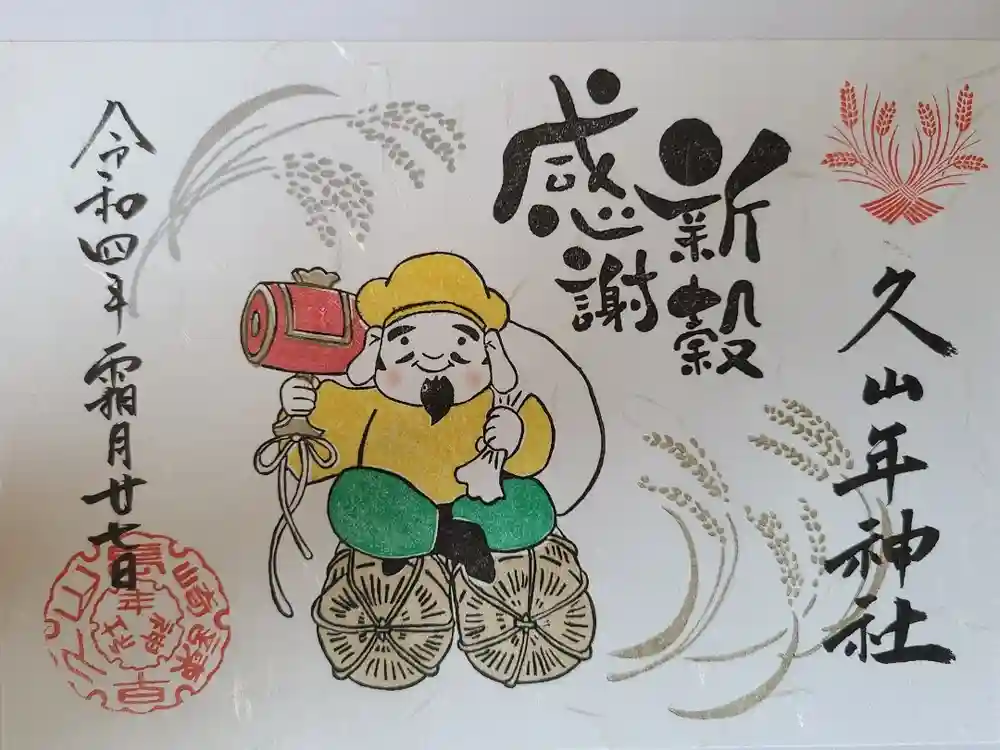 久山年神社
新穀
感謝
令和四年霜月廿七日